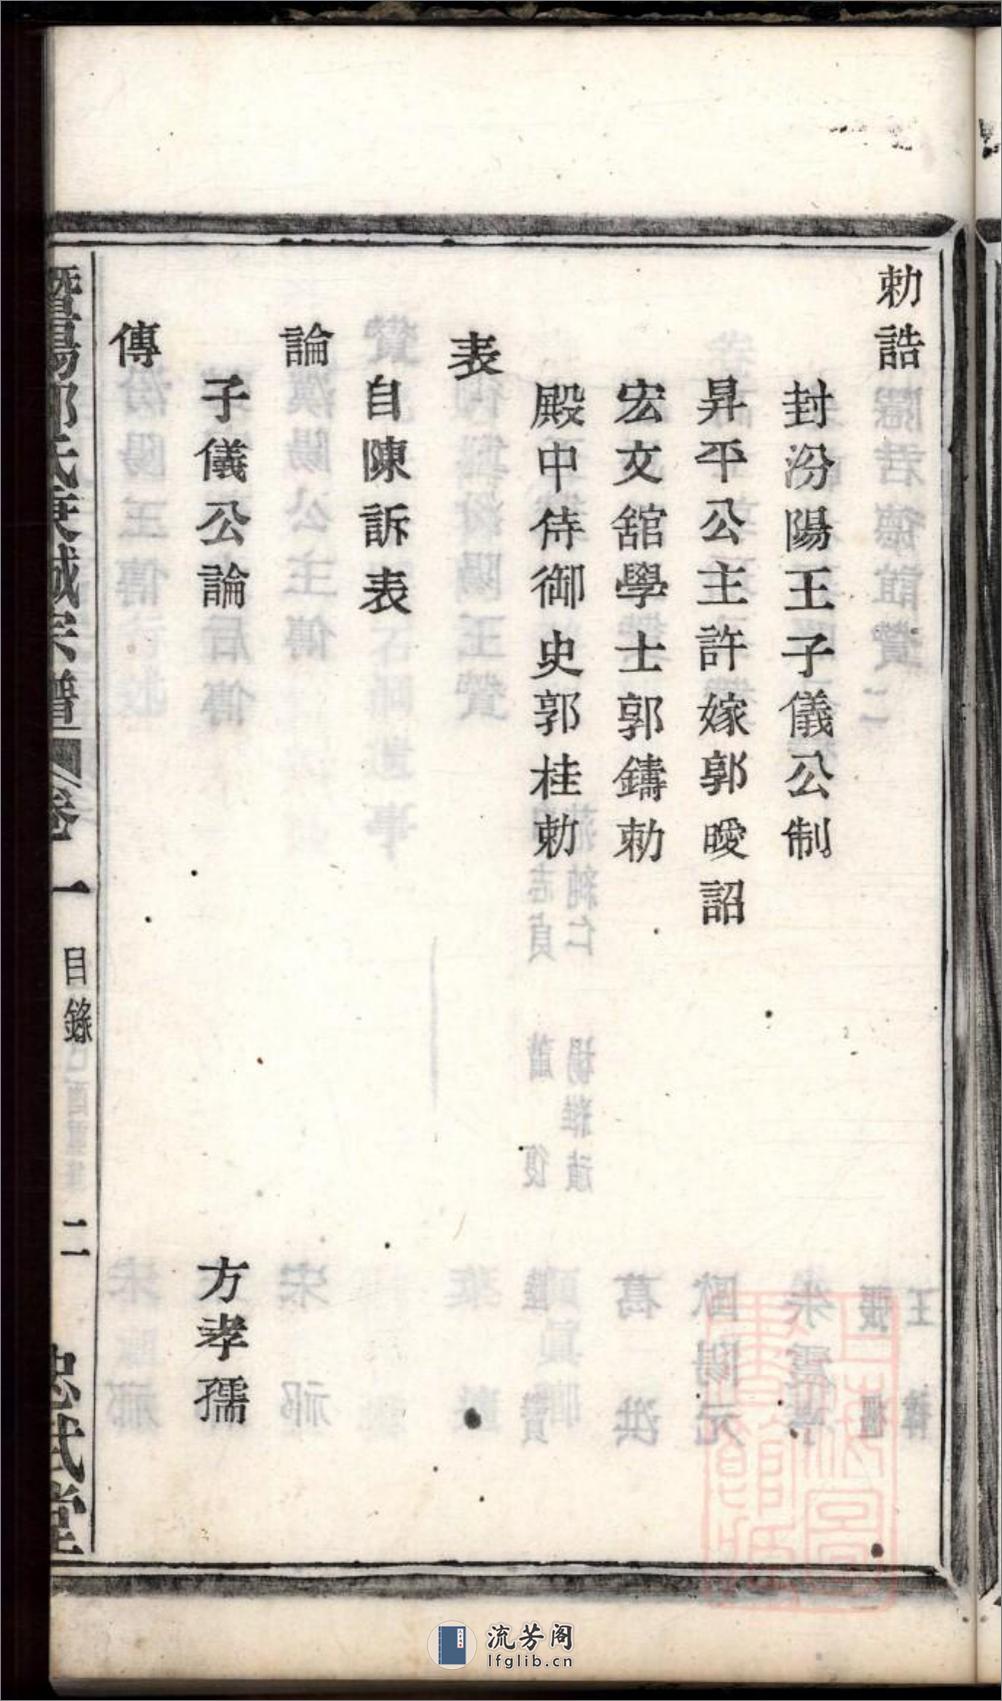 勅誥
封汾陽王子儀公制
昇平公主許嫁郭曖詔
宏文舘學士郭鑄勅
殿中侍御史郭桂勅
表
自陳訴表
論
子儀公論 方孝孺
傳
暨陽郭氏東城宗譜 卷一 目錄 二 忠武堂
流芳阁
lfglib.cn